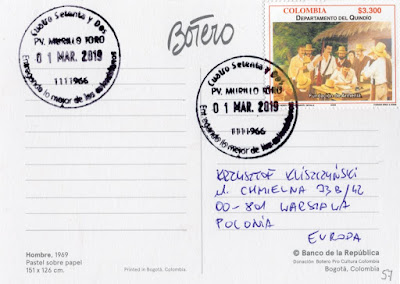 Cuatro Setenta y Dos
PV. MURILLO TORO
01 MAR. 2019
Entregando lo mejor de los colombianos
1111966
Botero
COLOMBIA $3.300
DEPARTAMENTO DEL QUINDÍO
Fundación de Armenia
Cuatro Setenta y Dos
PV. MURILLO TORO
01 MAR. 2019
Entregando lo mejor de los colombianos
1111966
KRZYSZTOF KLISZCZYŃSKI
ul. CHMIELNA 73B/42
00-801 WARSZAWA
POLONIA
EUROPA
Hombre, 1969
Pastel sobre papel
151 x 126 cm.
Printed in Bogotá, Colombia
© Banco de la República
Donación Botero Pro Cultura Colombia
Bogotá, Colombia
57